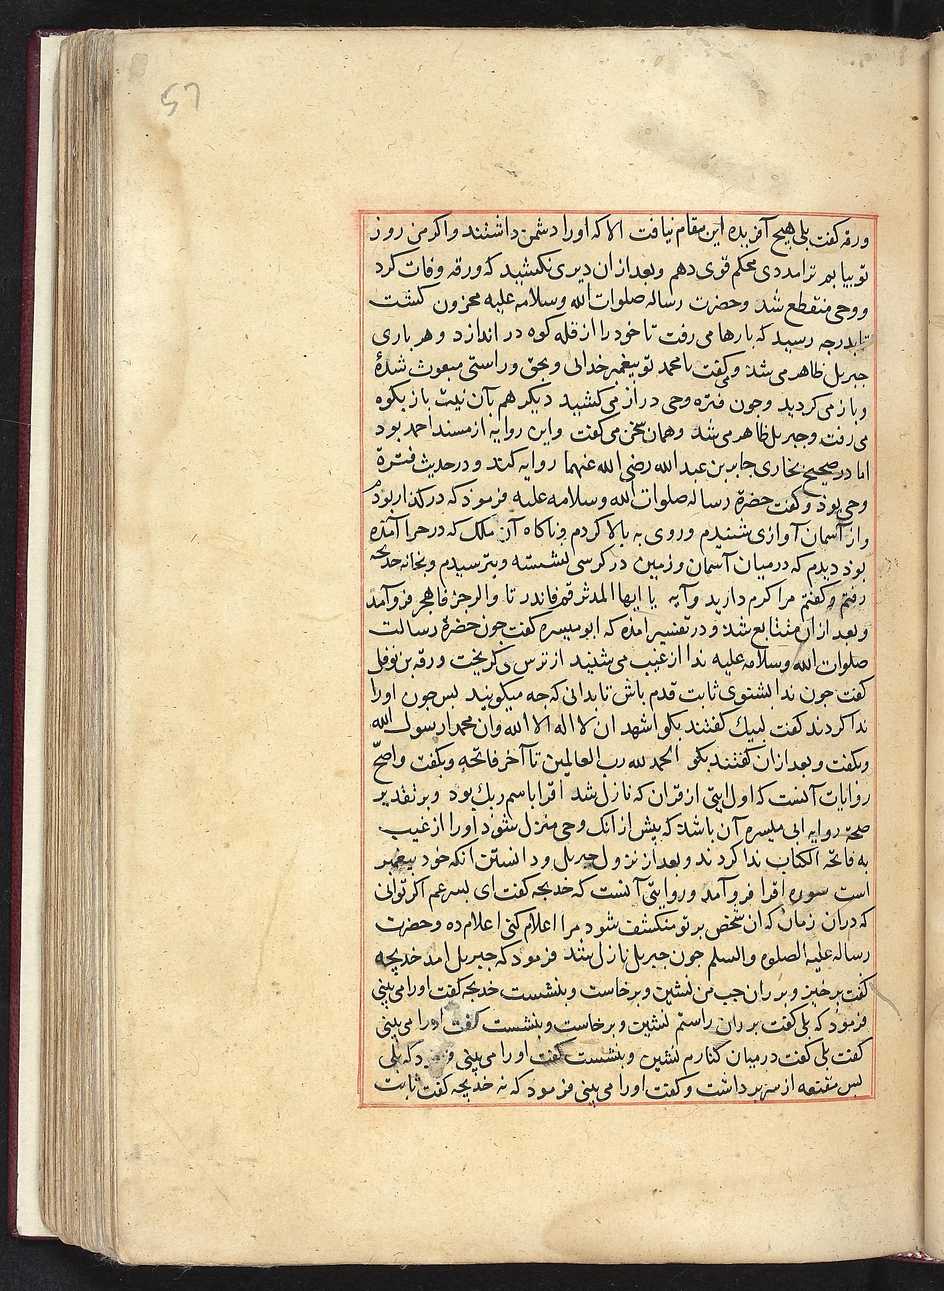 57
ورقه کفت بلی هیچ آفریده این مقام نیافت الا که اورا دشمن داشتند واکر من روز
تو بیابم ترا مددی محکم قوی دهم وبعد ازان دیری نکشید که ورقه وفات کرد
ووحی منقطع شد وحضرت رساله صلوات الله وسلامه علیه محزون کشت
تا بدرجه رسید که بارها می رفت تا خود را از قله کوه در اندازد وهر باری
جبریل ظاهر می شد ومی کفت یا محمد تو پیغمبر خدائی وبحق وراستی مبعوث شدۀ
وباز می کردید وچون فتره وحی دراز می کشید دیکر هم بآن نیت باز بکوه
می رفت وجبریل ظاهر می شد وهمان سخن می کفت واین روایه از مسند احمد بود
اما در صحیح بخاری جابر بن عبد الله رضی الله عنهما روایه کند ودر حدیث فترة
وحی بود وکفت حضرة رساله صلوات الله وسلامه علیه فرمود که در کذار بودم
واز آسمان آوازی شنیدم وروی به بالا کردم وناکاه آن ملک که در حرا آمده
بود دیدم که در میان آسمان وزمین در کرسی نشسته وبترسیدم وبخانه خدیجه
رفتم وکفتم مرا کرم دارید وآیه یا ایها المدثر قم فاندر تا والرجز فاهجر فرو آمد
وبعد ازان متتابع شد ودر تفسیر امده که ابو میسره کفت چون حضرة رسالت
صلوات الله وسلامه علیه ندا از غیب می شنید از ترس می کریخت ورقه بن نوفل
کفت چون ندا بشنوی ثابت قدم باش تا بدانی که چه میکویند بس چون اورا
ندا کردند کفت لبیک کفتند بکو اشهد ان لا اله الا الله وان محمدا رسول الله
وبکفت وبعد ازان کفتند بکو الحمد لله رب العالمین تا آخر فاتحه وبکفت واصح
روایات آنست که اول ایتی از قران که نازل شد اقرا باسم ربک بود وبر تقدیر
صحة روایه ابی میسره آن باشد که بیش از انک وحی منزل شود اورا از غیب
به فاتحة الکتاب ندا کردند وبعد از نزول جبریل ودانستن انکه خود پیغمبر
است سوره اقرا فرو آمد وروایتی آنست که خدیجه کفت ای بسر عم اکر توانی
که دران زمان که ان شخص بر تو منکشف شود مرا اعلام کنی اعلام ده وحضرت
رساله علیه الصلوه والسلم چون جبریل نازل شد فرمود که جبریل امد خدیجه
کفت بر خیز وبر ران چب من نشین وبرخاست وبنشست خدیجه کفت اورا می بینی
فرمود که بلی کفت بر ران راستم نشین وبرخاست وبنشست کفت اورا می بینی
کفت بلی کفت در میان کنارم نشین وبنشست کفت اورا می بینی فرمود که بلی
بس مقنعه از سر برداشت وکفت اورا می بینی فرمود که نه خدیجه کفت ثابت